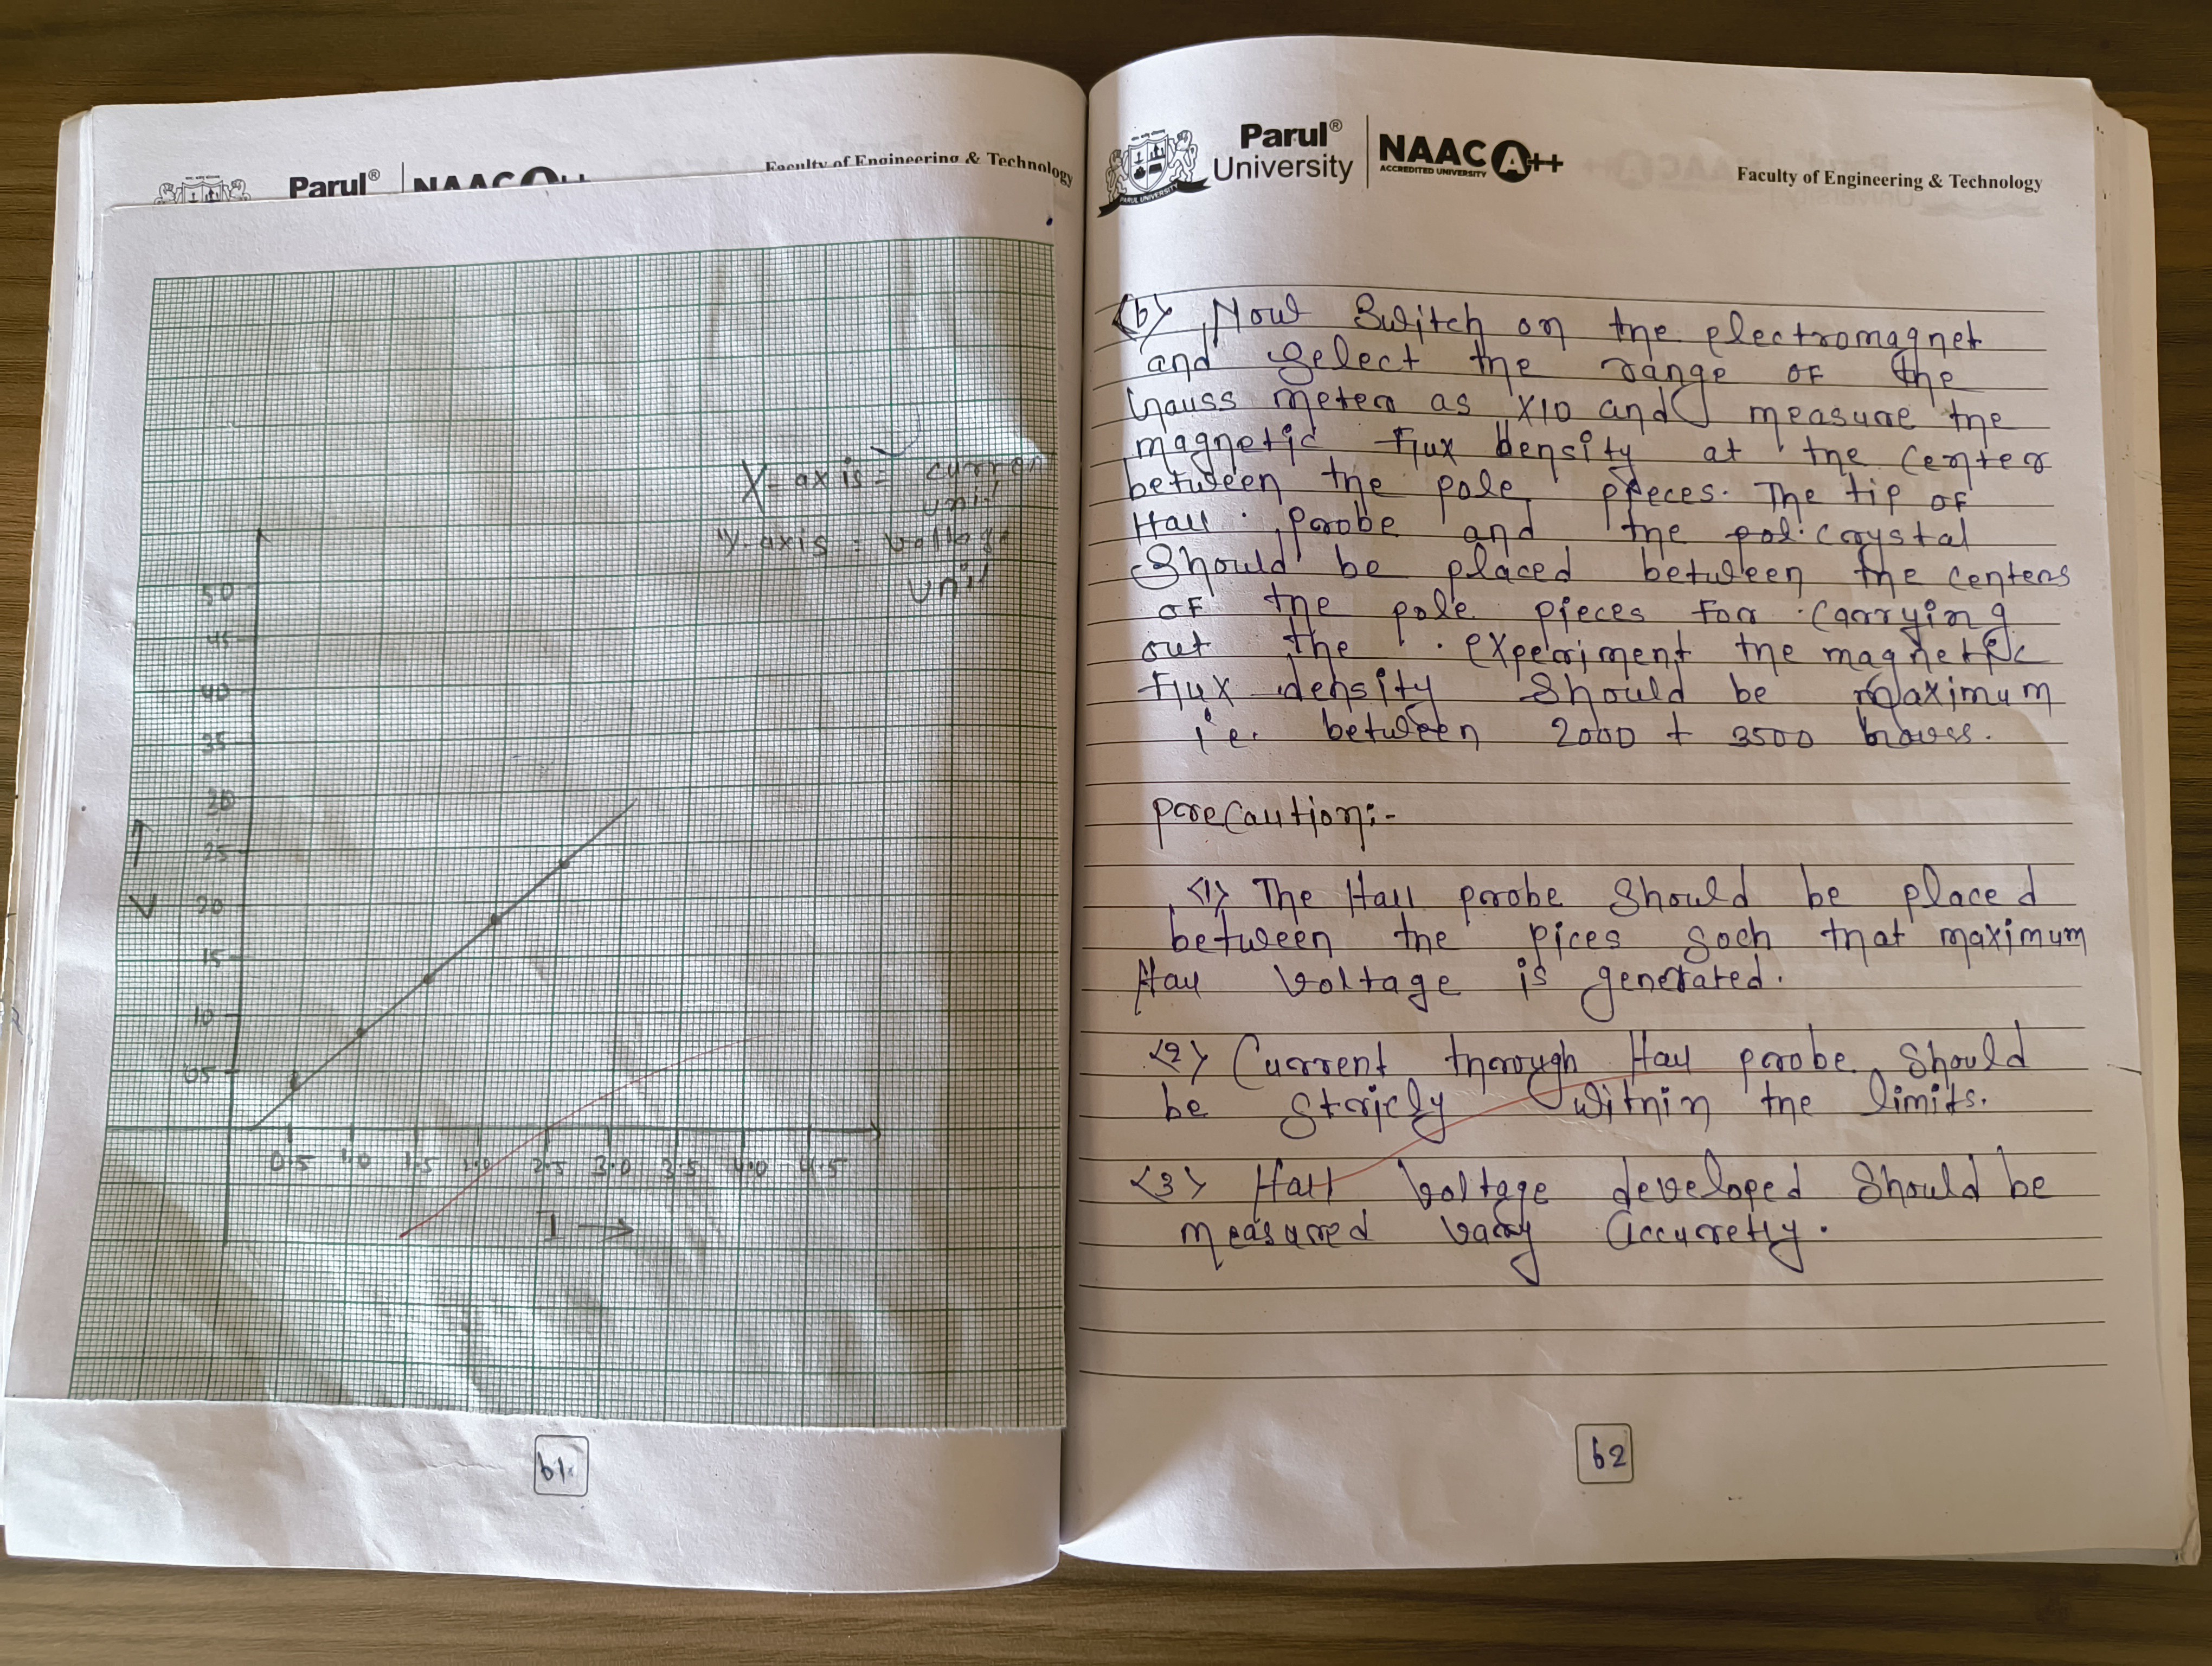 Parul®
NAAC A++
Faculty of Engineering & Technology
X-axis = curren
unit
Y-axis = voltage
unit
50
45
40
35
30
25
20
15
10
05
V
0.5 1.0 1.5 2.0 2.5 3.0 3.5 4.0 4.5
I →
61
PARUL UNIVERSITY
Parul®
University
NAAC A++
ACCREDITED UNIVERSITY
Faculty of Engineering & Technology
<b> Now Switch on the electromagnet
and select the range of the
Gauss meter as X10 and measure the
magnetic flux density at the center
between the pole pieces. The tip of
Hall probe and the pol. crystal
Should be placed between the centers
of the pole pieces for carrying
out the experiment the magnetic
flux density Should be maximum
i.e. between 2000 + 3500 Gauss.
precaution:-
<1> The Hall probe Should be placed
between the pices soch that maximum
Hall voltage is generated.
<2> Current through Hall probe Should
be stricly within the limits.
<3> Hall voltage developed Should be
measured vary accuretly.
62